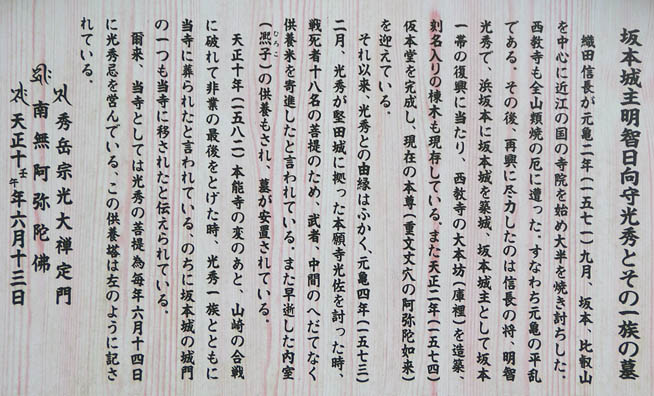 坂本城主明智日向守光秀とその一族の墓
織田信長が元亀二年(一五七一)九月、坂本、比叡山
を中心に近江の国の寺院を始め大半を焼き討ちした。
西教寺も全山類焼の厄に遭った。すなわち元亀の平乱
である。その後、再興に尽力したのは信長の将、明智
光秀で、浜坂本に坂本城を築城、坂本城主として坂本
一帯の復興に当たり、西教寺の大本坊(庫裡)を造築、
刻名入りの棟木も現存している。また天正二年(一五七四)
仮本堂を完成し、現在の本尊(重文丈六の阿弥陀如来)
を迎えている。
それ以来、光秀との由縁はふかく、元亀四年(一五七三)
二月、光秀が堅田城に拠った本願寺光佐を討った時、
戦死者十八名の菩提のため、武者、中間のへだてなく
供養米を寄進したと言われている。また早逝した内室
(凞子)の供養もされ、墓が安置されている。
むろこ
天正十年(一五八二)本能寺の変のあと、山崎の合戦
に破れて非業の最後をとげた時、光秀一族とともに
当寺に葬られたと言われている。のちに坂本城の城門
の一つも当寺に移されたと伝えられている。
爾来、当寺としては光秀の菩提為毎年六月十四日
に光秀忌を営んでいる、この供養塔は左のように記さ
れている。
秀岳宗光大禅定門
南無阿弥陀佛
天正十壬午年六月十三日